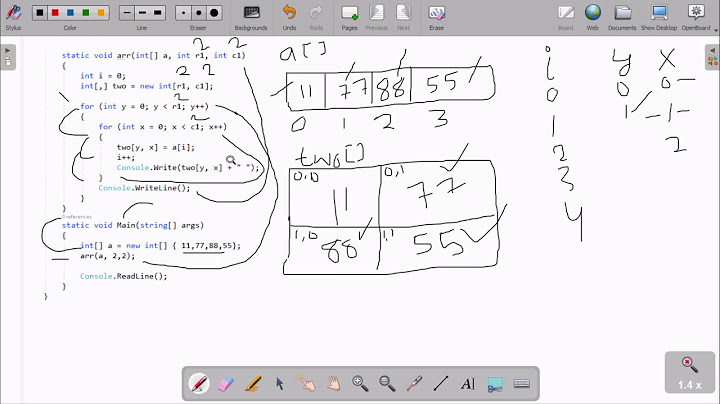 Stylus
Color
Line width
Eraser
Undo
Redo
Erase page
Backgrounds
Undock
Web
Documents
Show Desktop
static void arr(int[] a, int r1, int c1)
2 2
{
int i = 0;
2 2
int[,] two = new int[r1, c1];
2
for (int y = 0; y < r1; y++)
{
2
for (int x = 0; x < c1; x++)
{
two[y, x] = a[i];
i++;
Console.Write(two[y, x] + " ");
}
Console.WriteLine();
}
0 references
static void Main(string[] args)
{
int[] a = new int[] { 11,77,88,55};
arr(a, 2,2);
Console.ReadLine();
}
}
a[]
11 77 88 55
0 1 2 3
two[]
0,0 0,1
11 77
1,0 1,1
88 55
i y x
0 0 0
1 1 1
2 2
3
4
1.4 x